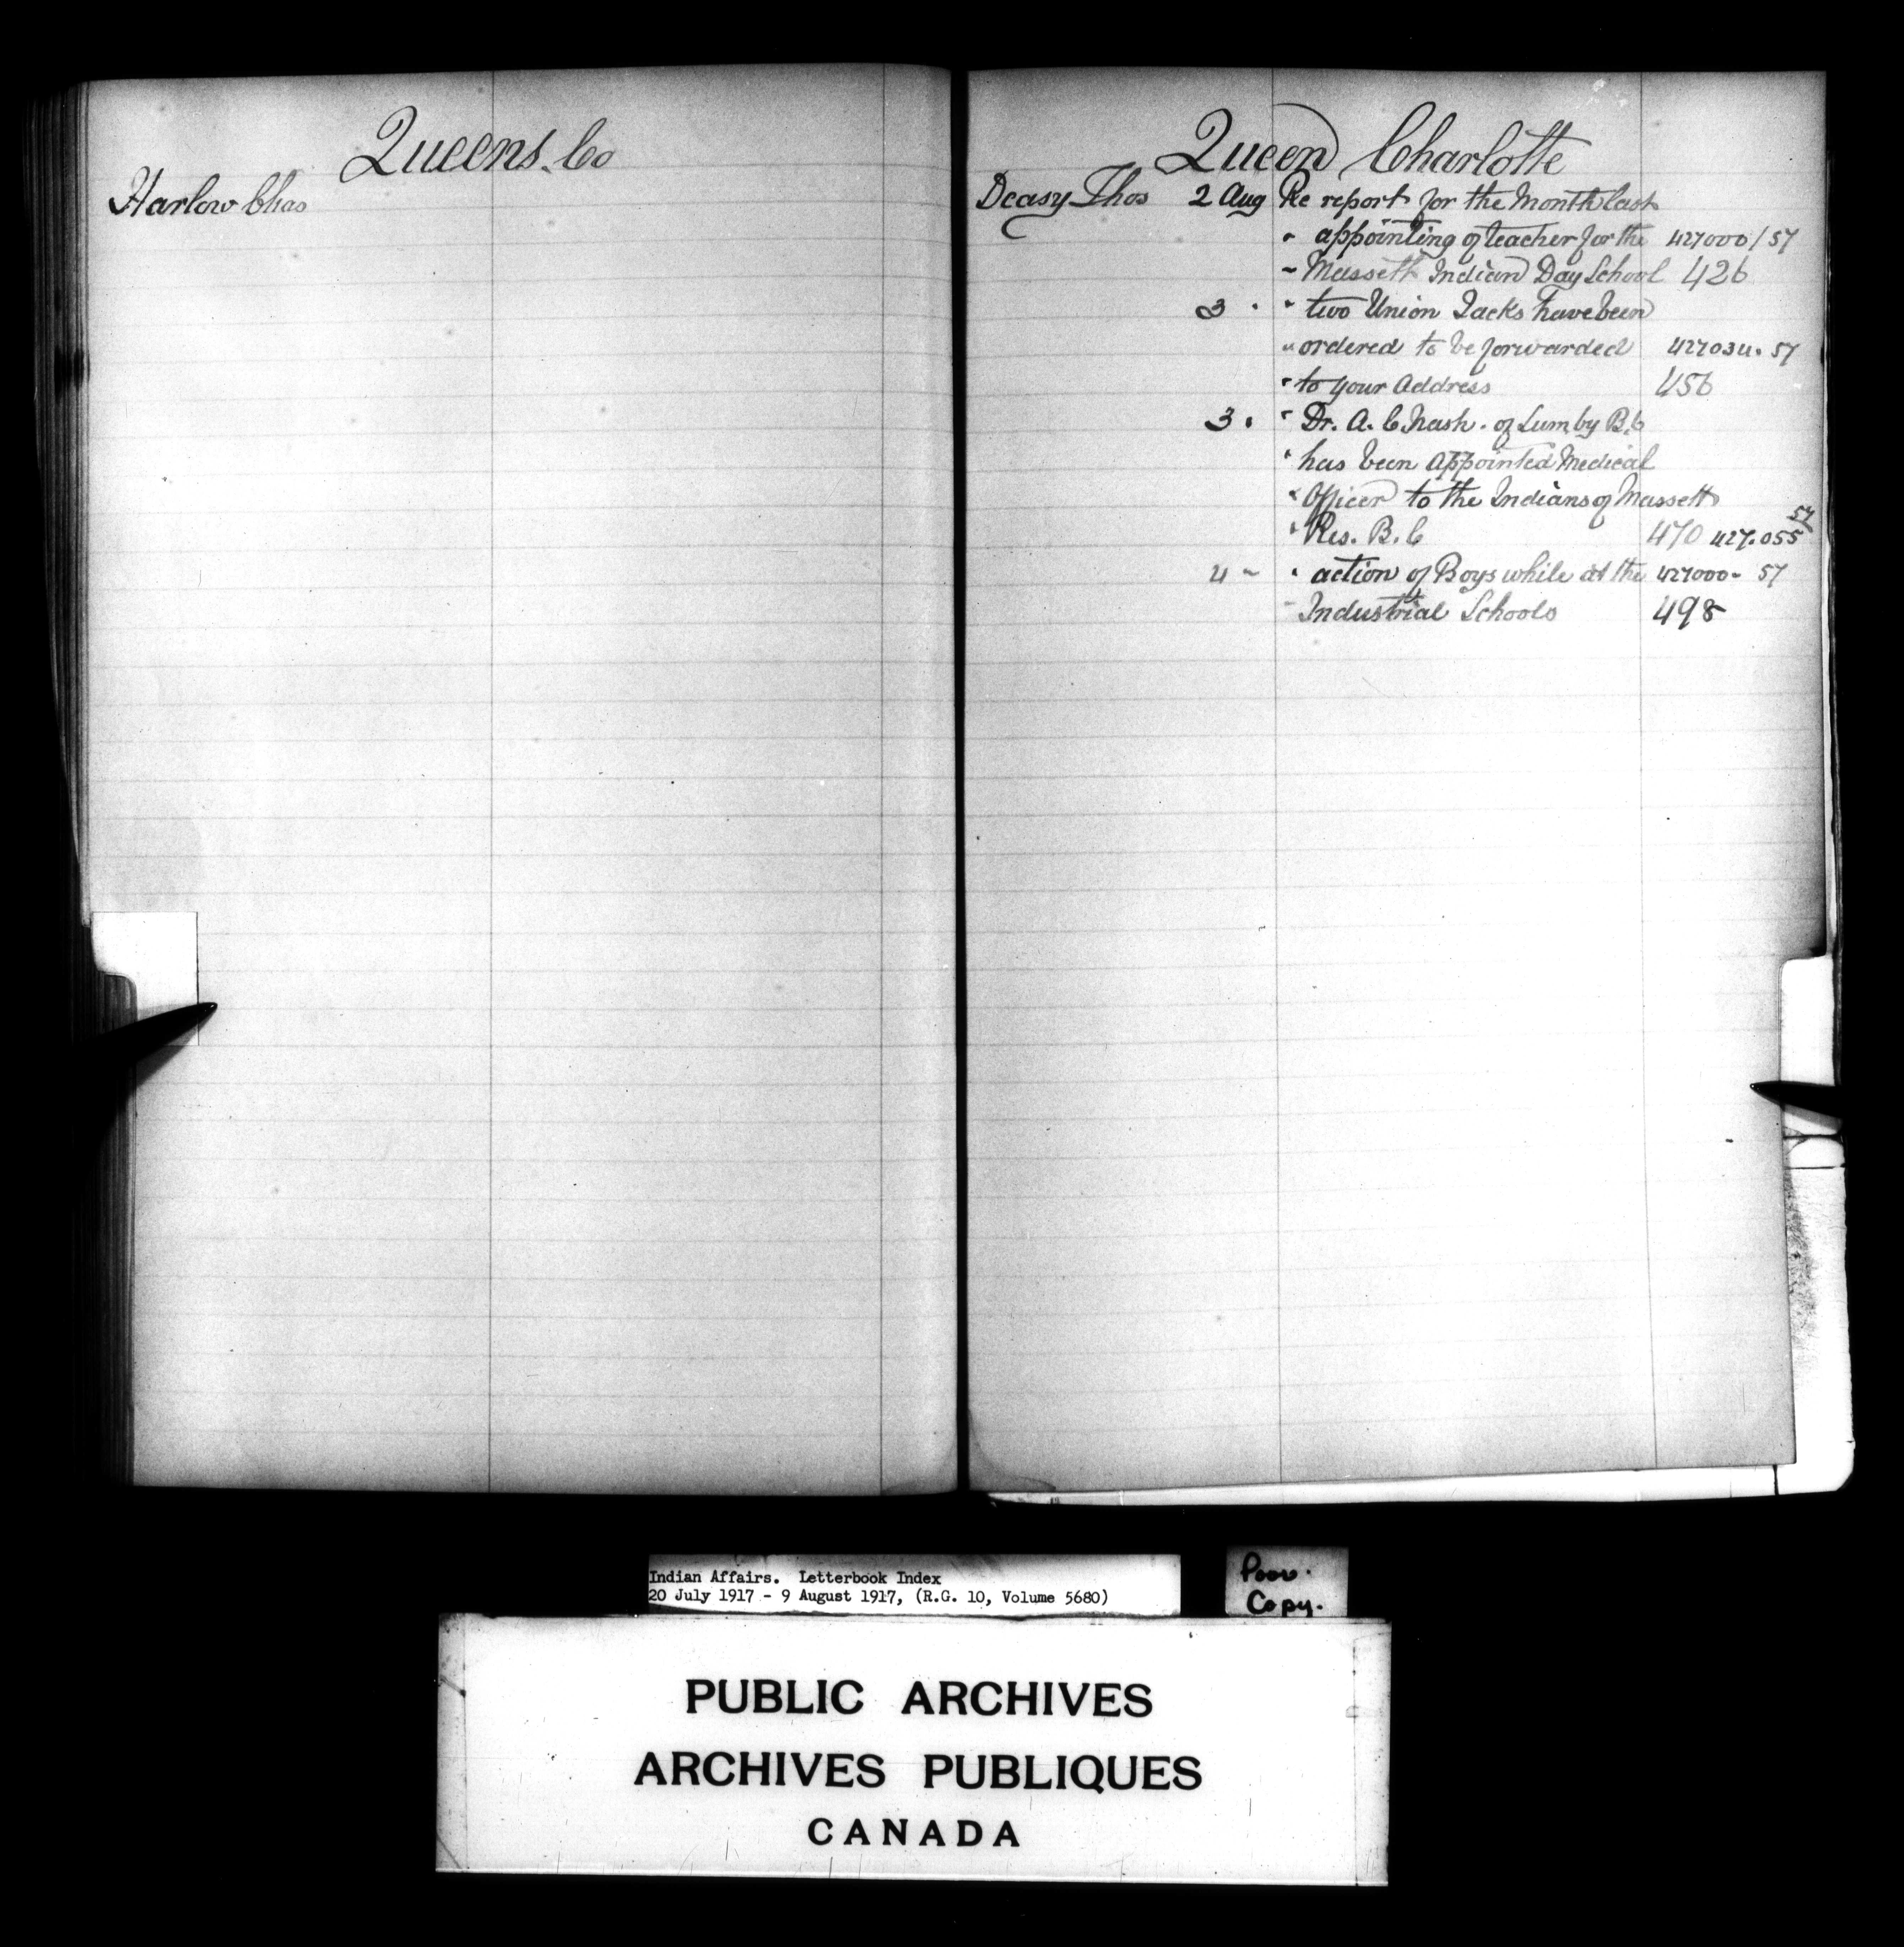 Queens. Co
Harlow Chas
Queen Charlotte
Deasy Thos 2 Aug Re report for the Month last
" appointing of teacher for the 427000/57
" Massett Indian Day School 426
3 " " two Union Jacks have been
" ordered to be forwarded 427034. 57
" to your address 456
3 " " Dr. A. C Nash. of Lumby B.C
" has been appointed Medical
" Officer to the Indians of Massett
57
" Res. B. C 470 427.055
4 " " action of Boys while at the 427000- 57
" Industrial Schools 498
Indian Affairs. Letterbook Index
20 July 1917 - 9 August 1917, (R.G. 10, Volume 5680)
Poor.
Copy.
PUBLIC ARCHIVES
ARCHIVES PUBLIQUES
CANADA